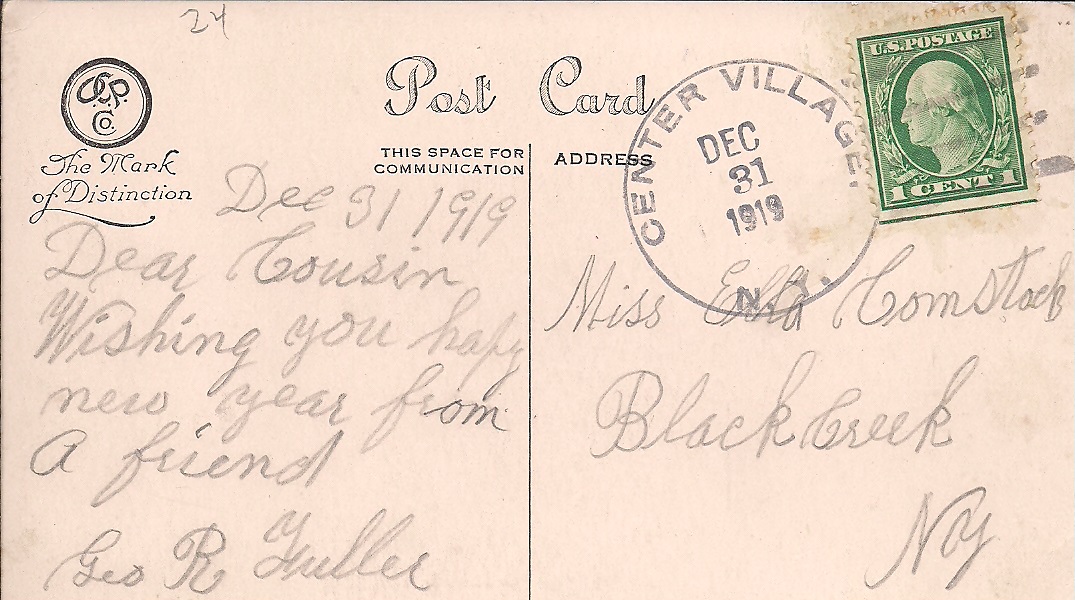 24
G.S.P. Co.
The Mark
of Distinction
Post Card
THIS SPACE FOR
COMMUNICATION
ADDRESS
CENTER VILLAGE.
DEC
31
1919
N.Y.
U.S. POSTAGE
1 CENT 1
Dec 31 1919
Dear Cousin
Wishing you hapy
new year from
A friend
Geo R Fuller
Miss Ella Comstock
Black Creek
NY